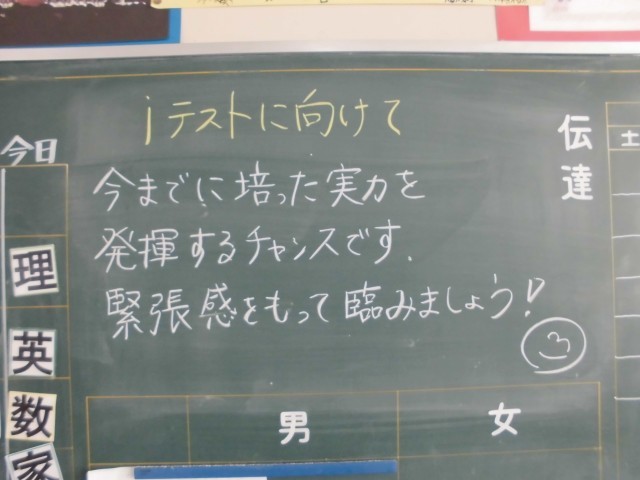 iテストに向けて
今までに培った実力を
発揮するチャンスです.
緊張感をもって臨みましょう!
伝達
今日
理
英
数
家
男
女
土